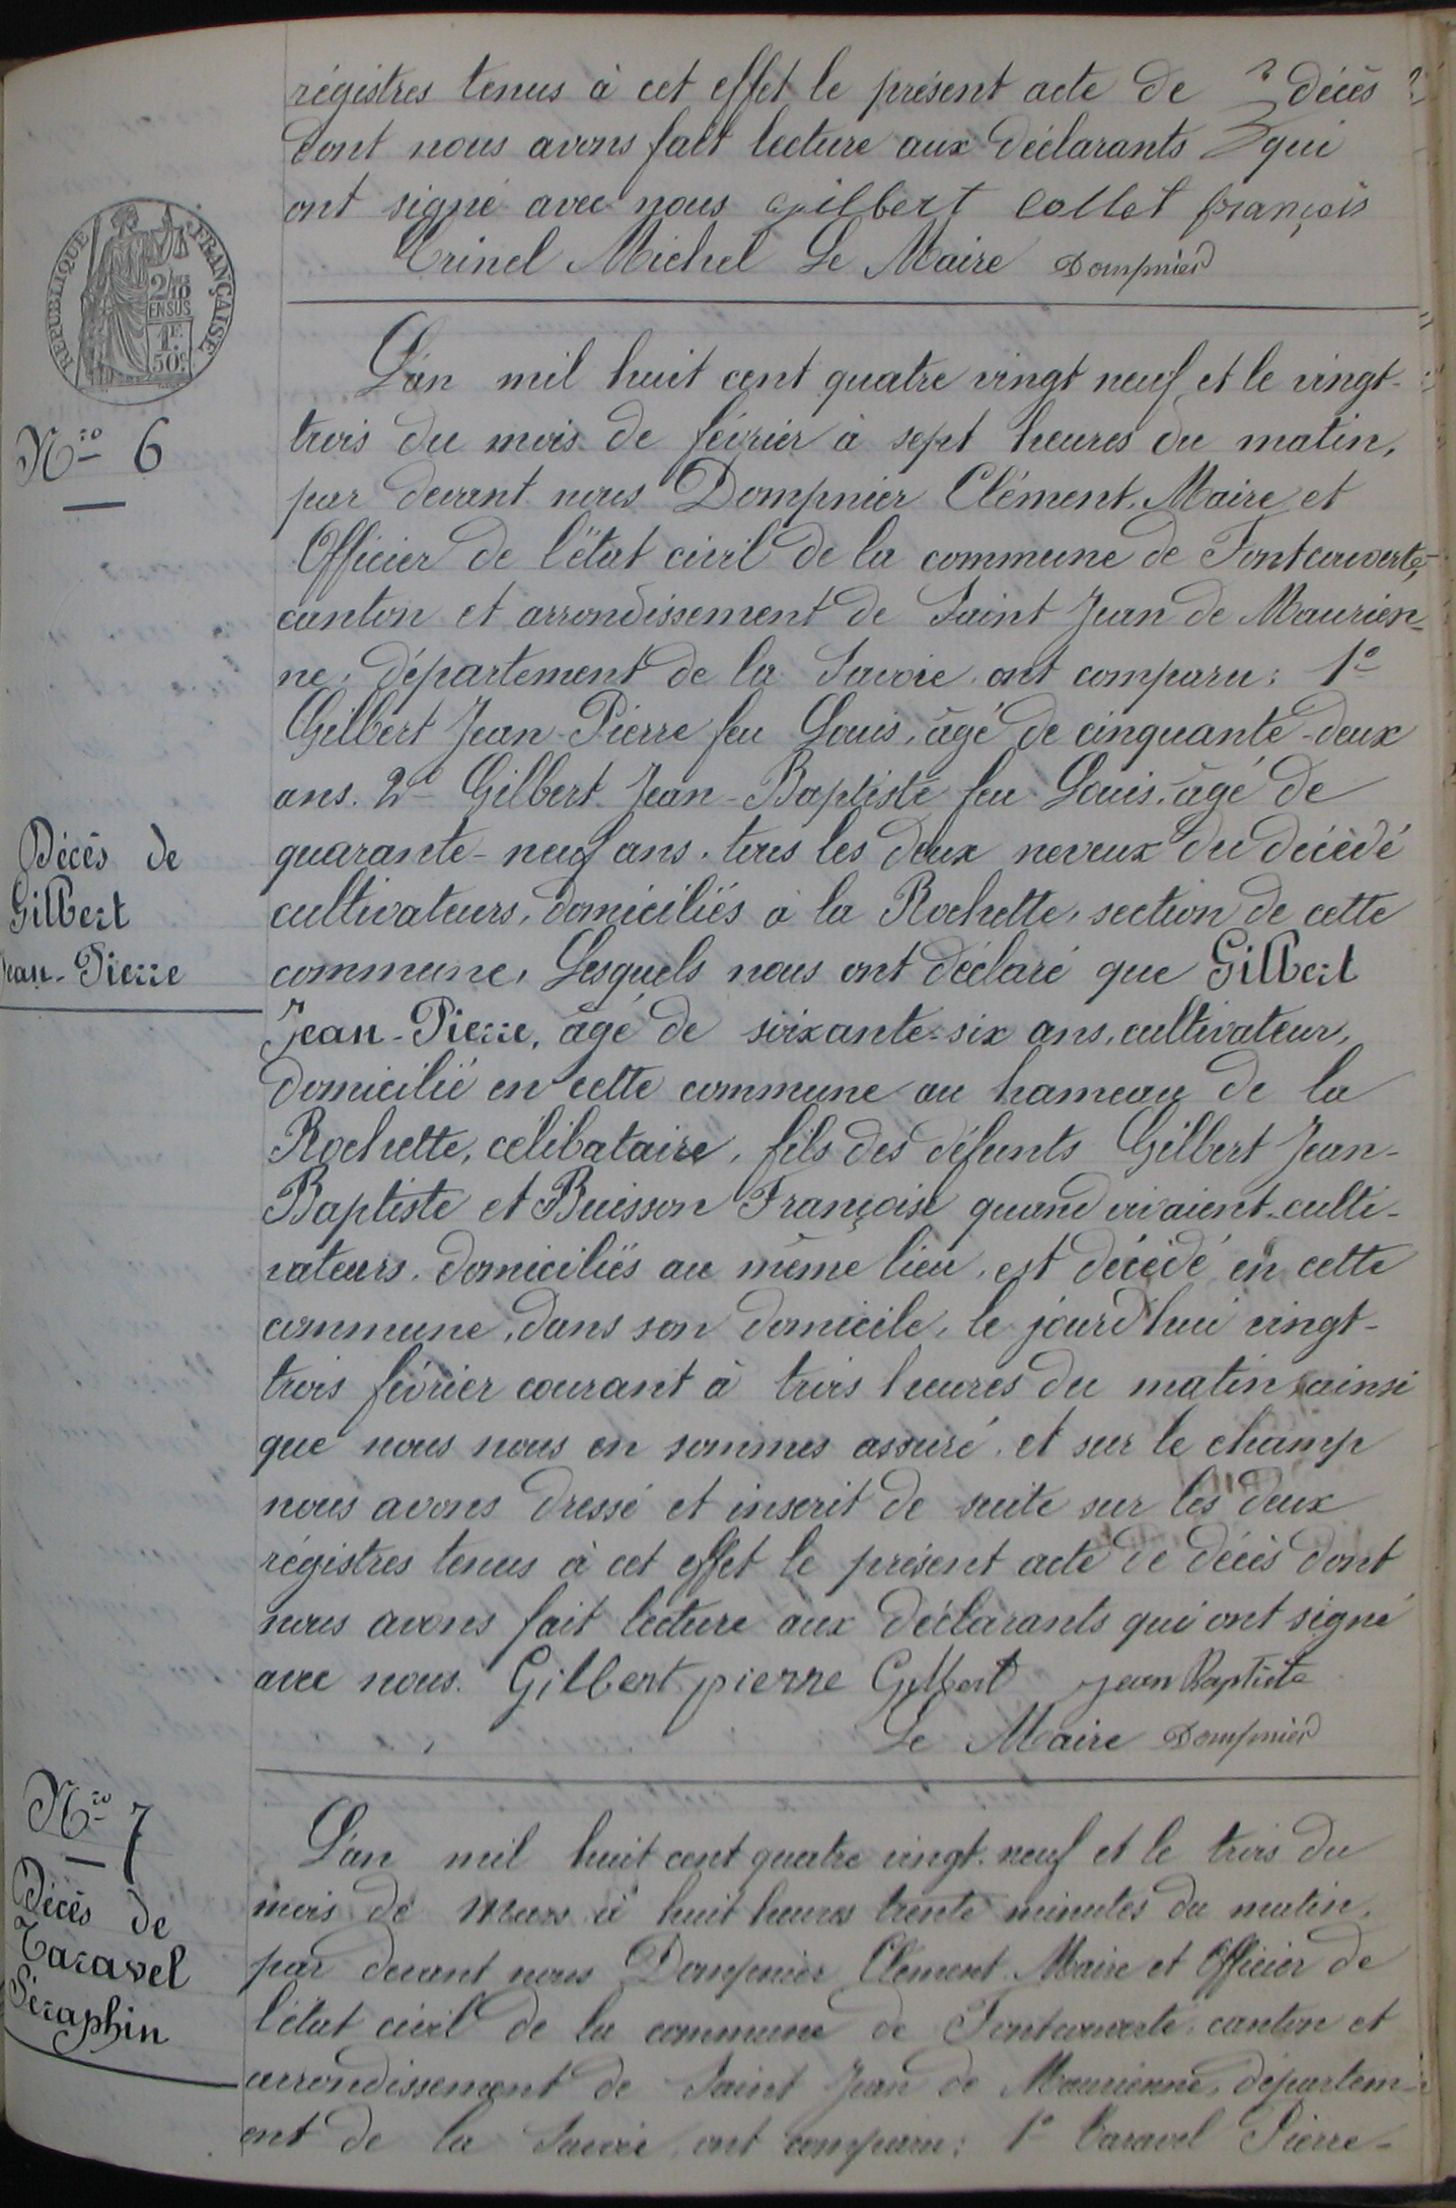 régistres tenus à cet effet le présent acte de décès
dont nous avons fait lecture aux déclarants qui
ont signé avec nous gilbert collet françois
Crinel Michel Le Maire Dompnier
REPUBLIQUE FRANÇAISE
2/10
EN SUS
1F
50c
L'an mil huit cent quatre vingt neuf et le vingt-
Nro 6
trois du mois de février à sept heures du matin,
par devant nous Dompnier Clément, Maire et
Officier de l'état civil de la commune de Fontcouverte,
canton et arrondissement de Saint Jean de Maurien-
ne, département de la Savoie ont comparu: 1o
Gilbert Jean-Pierre feu Louis, âgé de cinquante-deux
ans. 2o Gilbert Jean-Baptiste feu Louis, âgé de
Décès de
Gilbert
Jean-Pierre
quarante-neuf ans, tous les deux neveux du décédé
cultivateurs, domiciliés à la Rochette, section de cette
commune, Lesquels nous ont déclaré que Gilbert
Jean-Pierre, âgé de soixante-six ans, cultivateur,
domicilié en cette commune au hameau de la
Rochette, célibataire, fils des défunts Gilbert Jean-
Baptiste et Buisson Françoise quand vivaient culti-
vateurs, domiciliés au même lieu, est décédé en cette
commune, dans son domicile, le jourd'hui vingt-
trois février courant à trois heures du matin, ainsi
que nous nous en sommes assuré, et sur le champ
nous avons dressé et inscrit de suite sur les deux
régistres tenus à cet effet le présent acte de décès dont
nous avons fait lecture aux déclarants qui ont signé
avec nous. Gilbert pierre Gilbert jean Baptiste
Le Maire Dompnier
Nro 7
Décès de
Taravel
Séraphin
L'an mil huit cent quatre vingt-neuf et le trois du
mois de mars à huit heures trente minutes du matin,
par devant nous Dompnier Clément Maire et Officier de
l'état civil de la commune de Fontcouverte, canton et
arrondissement de Saint Jean de Maurienne, départem-
ent de la Savoie, ont comparu: 1o Taravel Pierre-